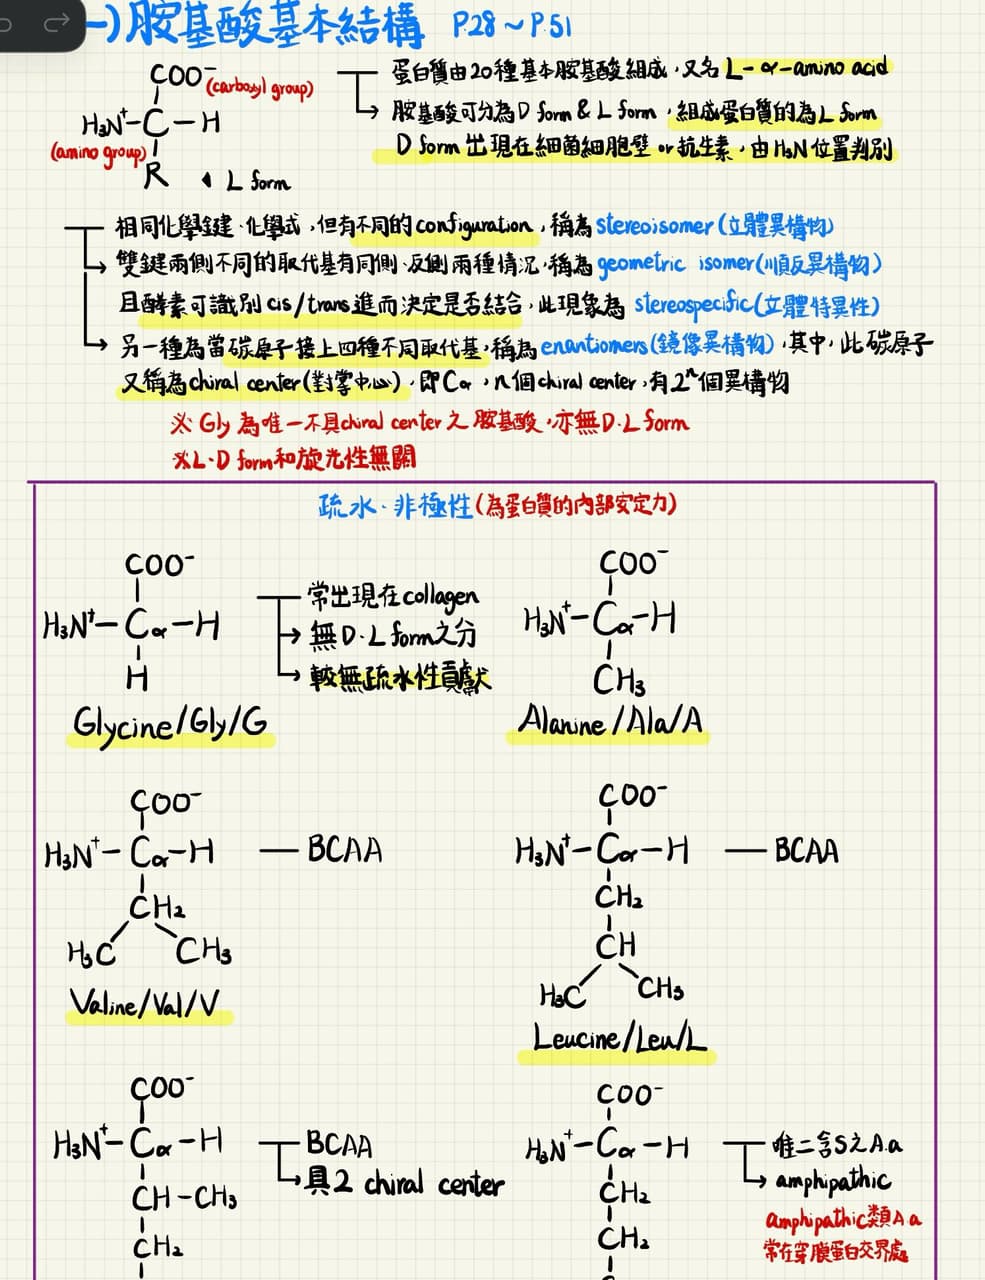 一)胺基酸基本結構 P.28~P.51
COO⁻ (carboxyl group)
H₃N⁺-C-H
(amino group)
R
L form
蛋白質由20種基本胺基酸組成,又名L-α-amino acid
胺基酸可分為D form & L form,組成蛋白質的為L form
D form出現在細菌細胞壁or抗生素,由H₃N位置判別
相同化學鍵、化學式,但有不同的configuration,稱為stereoisomer(立體異構物)
雙鍵兩側不同的取代基有同側、反側兩種情況,稱為geometric isomer(順反異構物)
且酵素可識別cis/trans進而決定是否結合,此現象為 stereospecific(立體特異性)
另一種為當碳原子接上四種不同取代基,稱為enantiomers(鏡像異構物),其中,此碳原子
又稱為chiral center(對掌中心),即Cα,n個chiral center,有2ⁿ個異構物
※ Gly為唯一不具chiral center之胺基酸,亦無D.L form
※L.D form和旋光性無關
疏水、非極性(為蛋白質的內部安定力)
COO⁻
H₃N⁺-Cα-H
H
Glycine/Gly/G
常出現在collagen
無D.L form之分
較無疏水性貢獻
COO⁻
H₃N⁺-Cα-H
CH₃
Alanine/Ala/A
COO⁻
H₃N⁺-Cα-H
CH₂
H₃C CH₃
Valine/Val/V
BCAA
COO⁻
H₃N⁺-Cα-H
CH₂
CH
H₃C CH₃
Leucine/Leu/L
BCAA
COO⁻
H₃N⁺-Cα-H
CH-CH₃
CH₂
BCAA
具2 chiral center
COO⁻
H₃N⁺-Cα-H
CH₂
CH₂
唯二含S之A.a
amphipathic
amphipathic類A.a
常在穿膜蛋白交界處